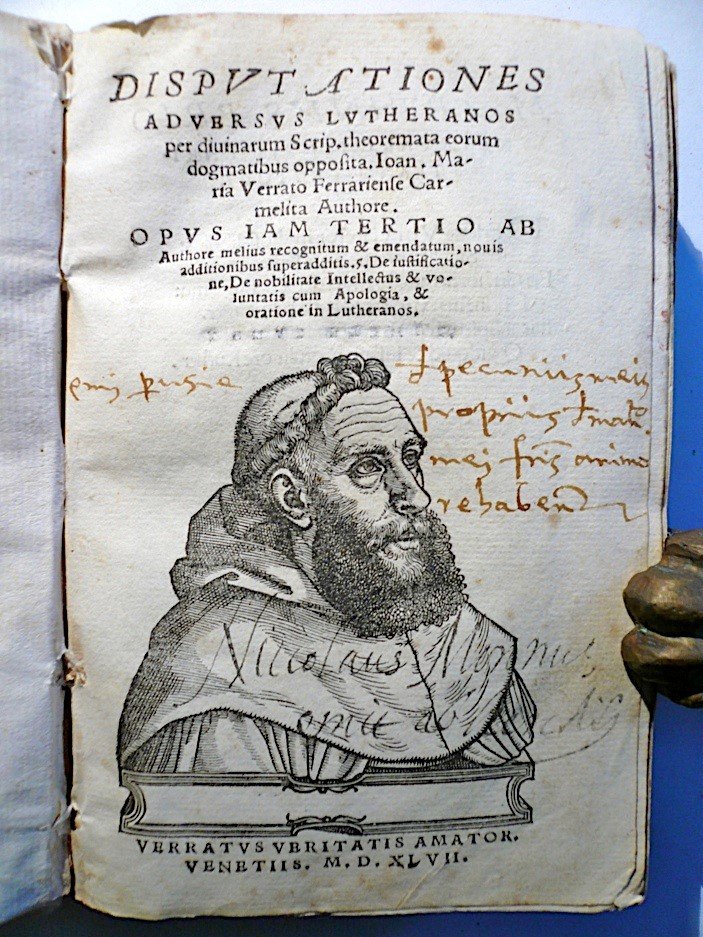 DISPVTATIONES
ADVERSVS LVTHERANOS
per diuinarum Scrip. theoremata eorum
dogmatibus opposita. Ioan. Ma-
ria Verrato Ferrariense Car-
melita Authore.
OPVS IAM TERTIO AB
Authore melius recognitum & emendatum, nouis
additionibus superadditis. s. De iustificatio-
ne, De nobilitate Intellectus & vo-
luntatis cum Apologia, &
oratione in Lutheranos.
emi perusie
pecuniis meis
propriis
mei fris
rehaben
Nicolaus
emit
VERRATVS VERITATIS AMATOR.
VENETIIS. M. D. XLVII.